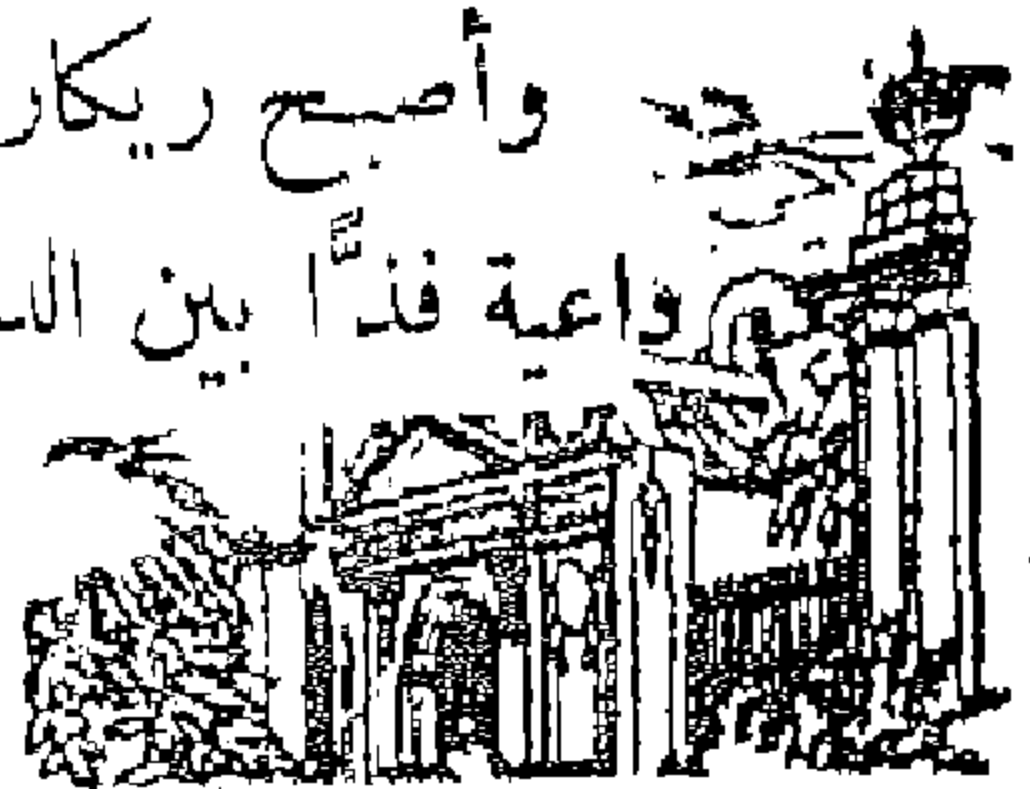 وأصبح ريكار
واعية فذًّا بين